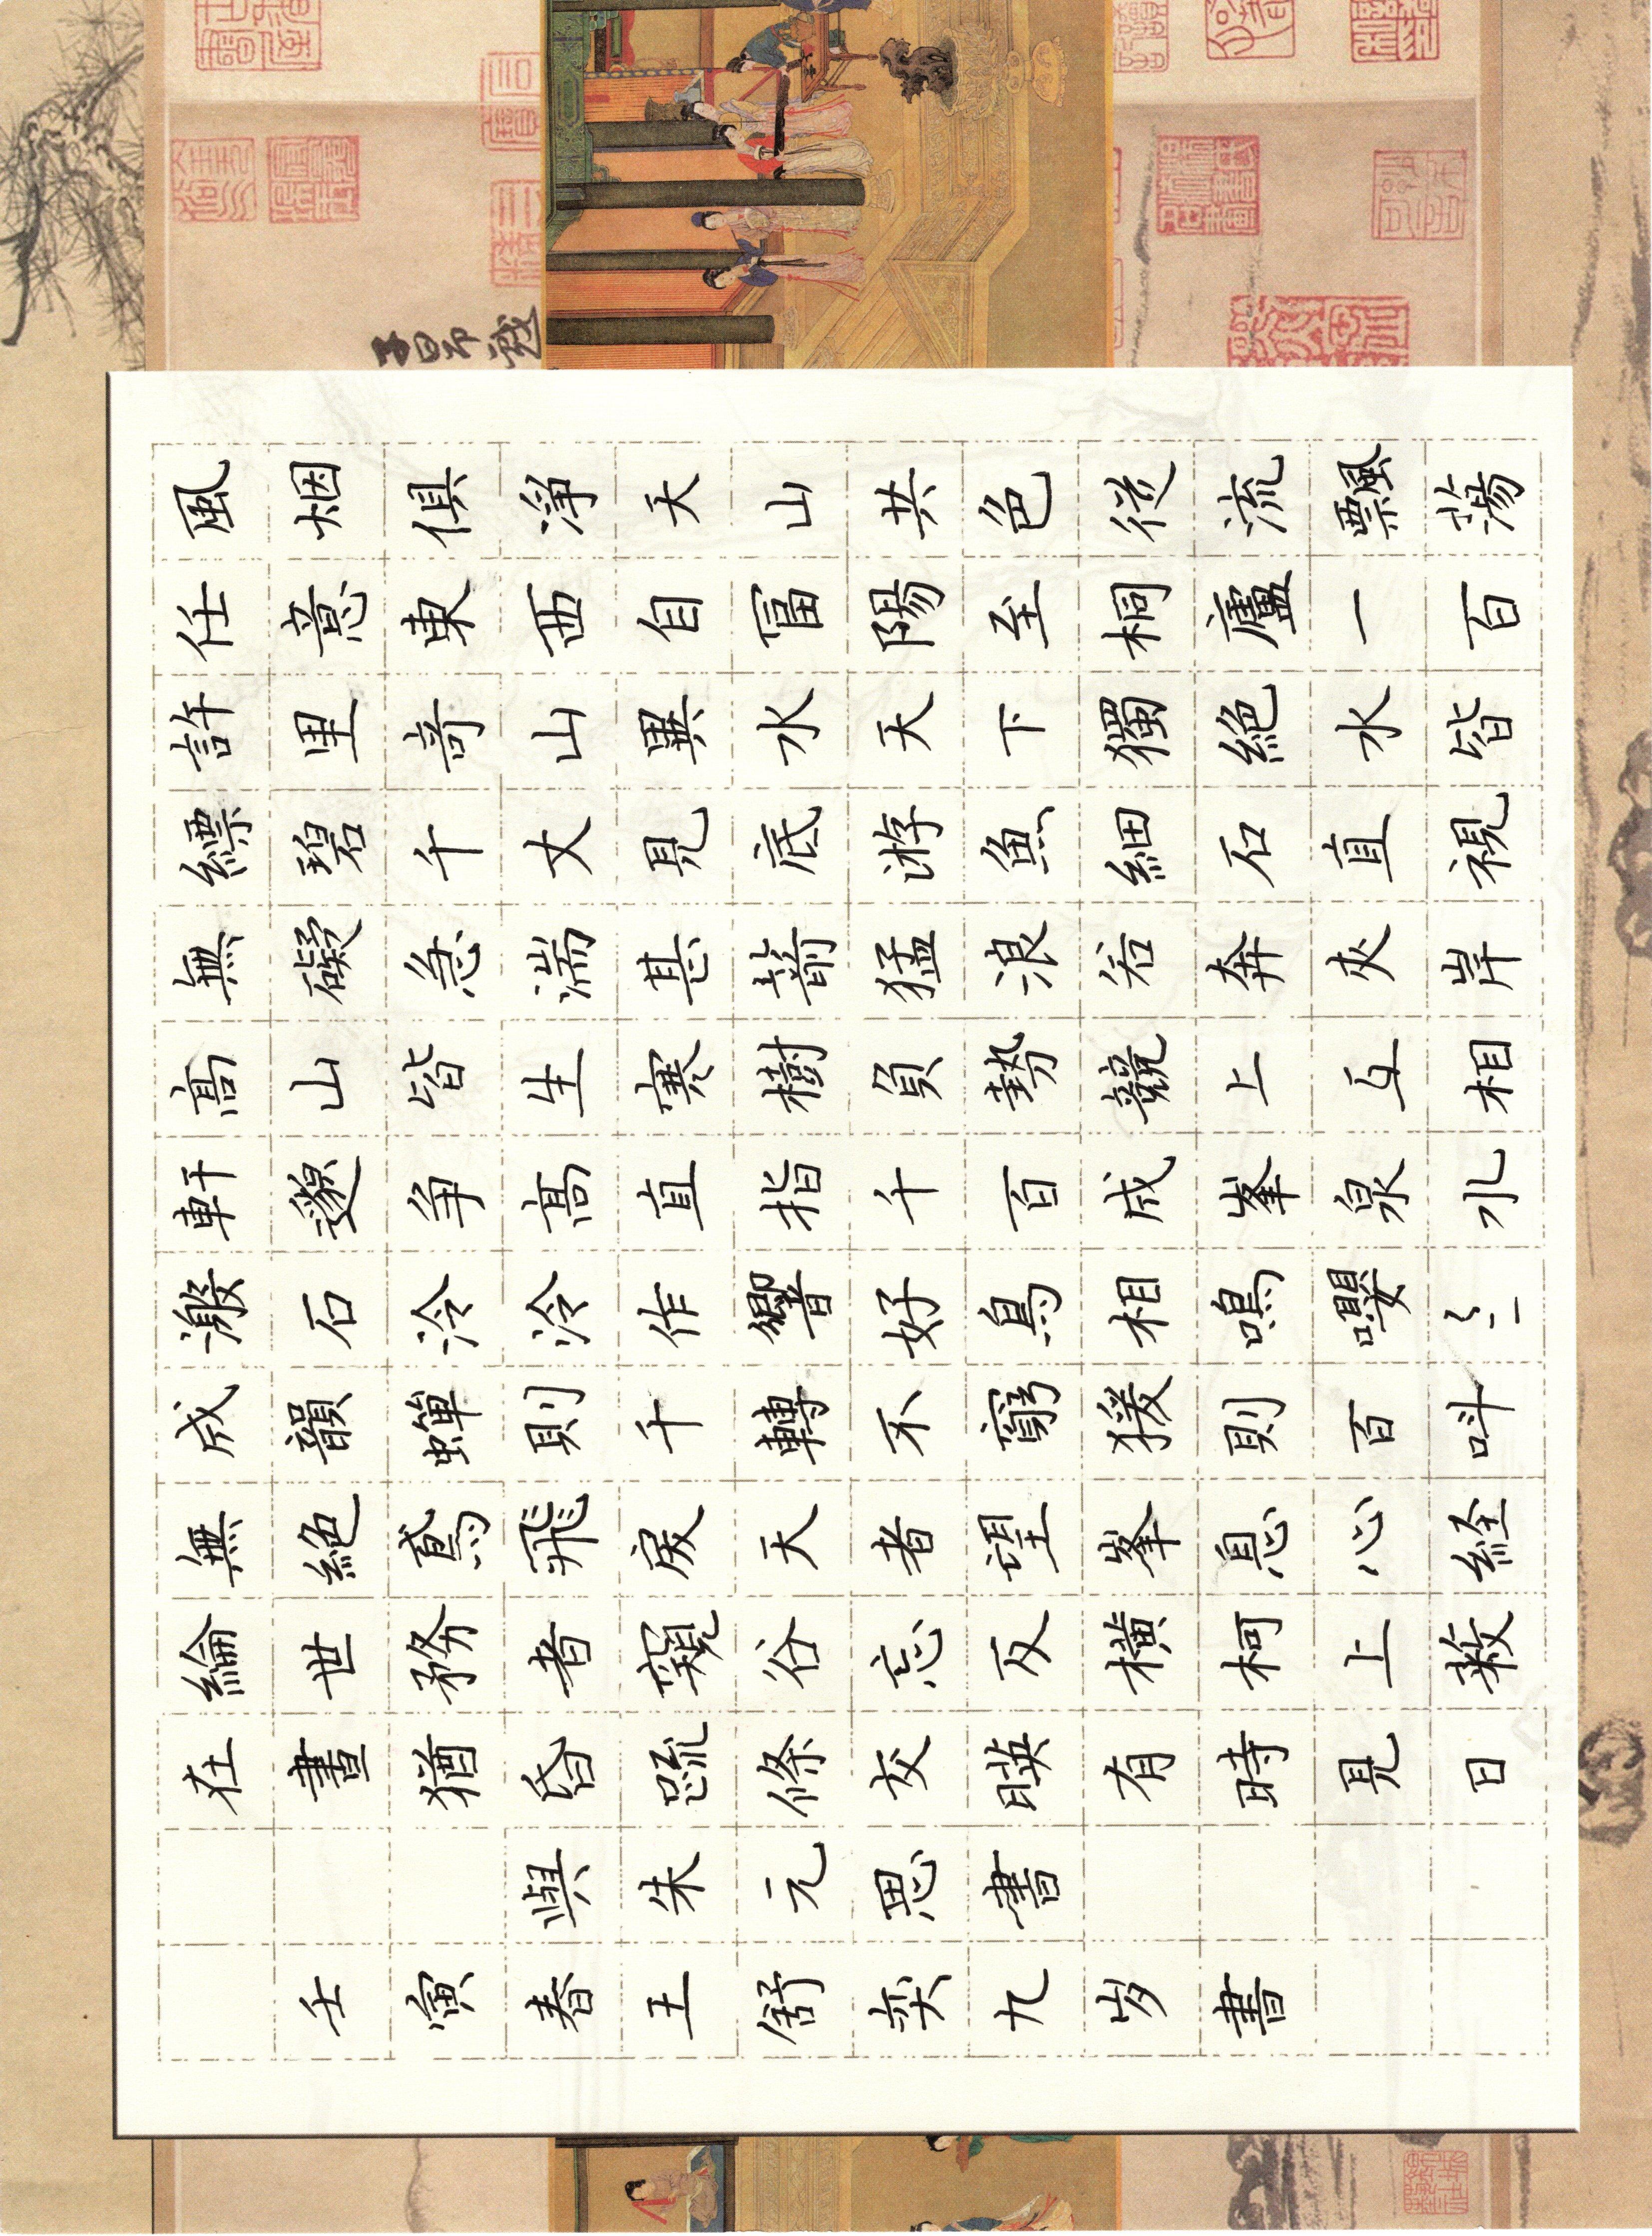 風烟俱淨天山共色従流飄蕩
任意東西自富陽至桐廬一百
許里奇山異水天下獨絶水皆
縹碧千丈見底游魚細石直視
無礙急湍甚箭猛浪若奔夾岸
高山皆生寒樹負勢競上互相
軒邈争高直指千百成峯泉水
激石泠泠作響好鳥相鳴嚶〻
成韻蟬則千轉不窮猨則百叫
無絶鳶飛戾天者望峯息心経
綸世務者窺谷忘反橫柯上蔽
在晝猶昏疏條交暎有時見日
與朱元思書
壬寅春王舒奕九岁書